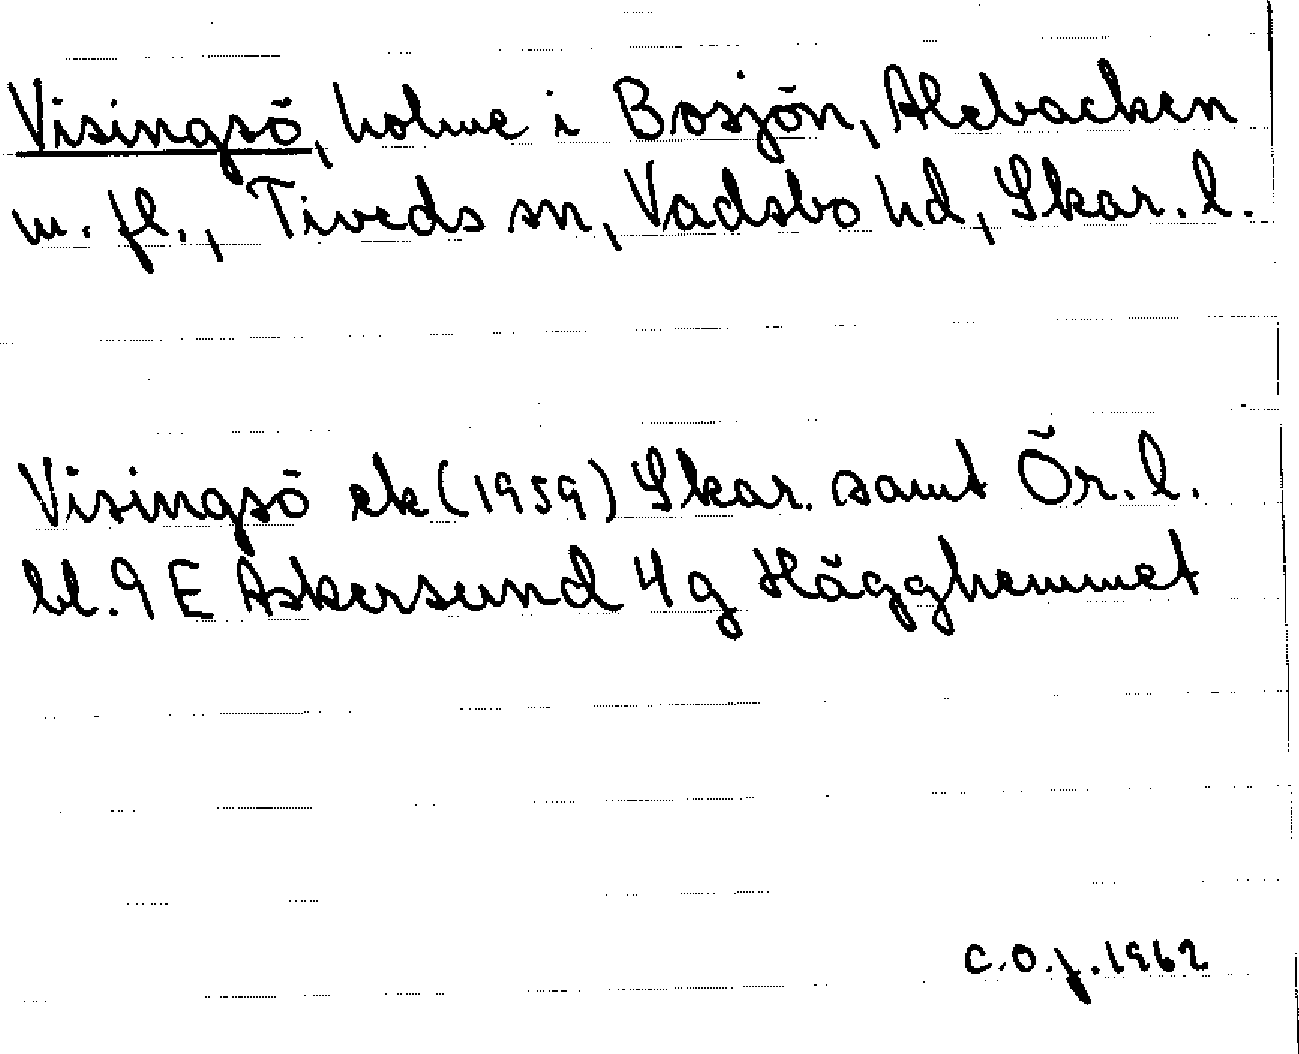 Visingsö, holme i Bosjön, Alebacken
m. fl., Tiveds sn, Vadsbo hd, Skar. l.
Visingsö ek (1959) Skar. samt Ör. l.
bl. 9 E Askersund 4 g Hägghemmet
C.O.f. 1962